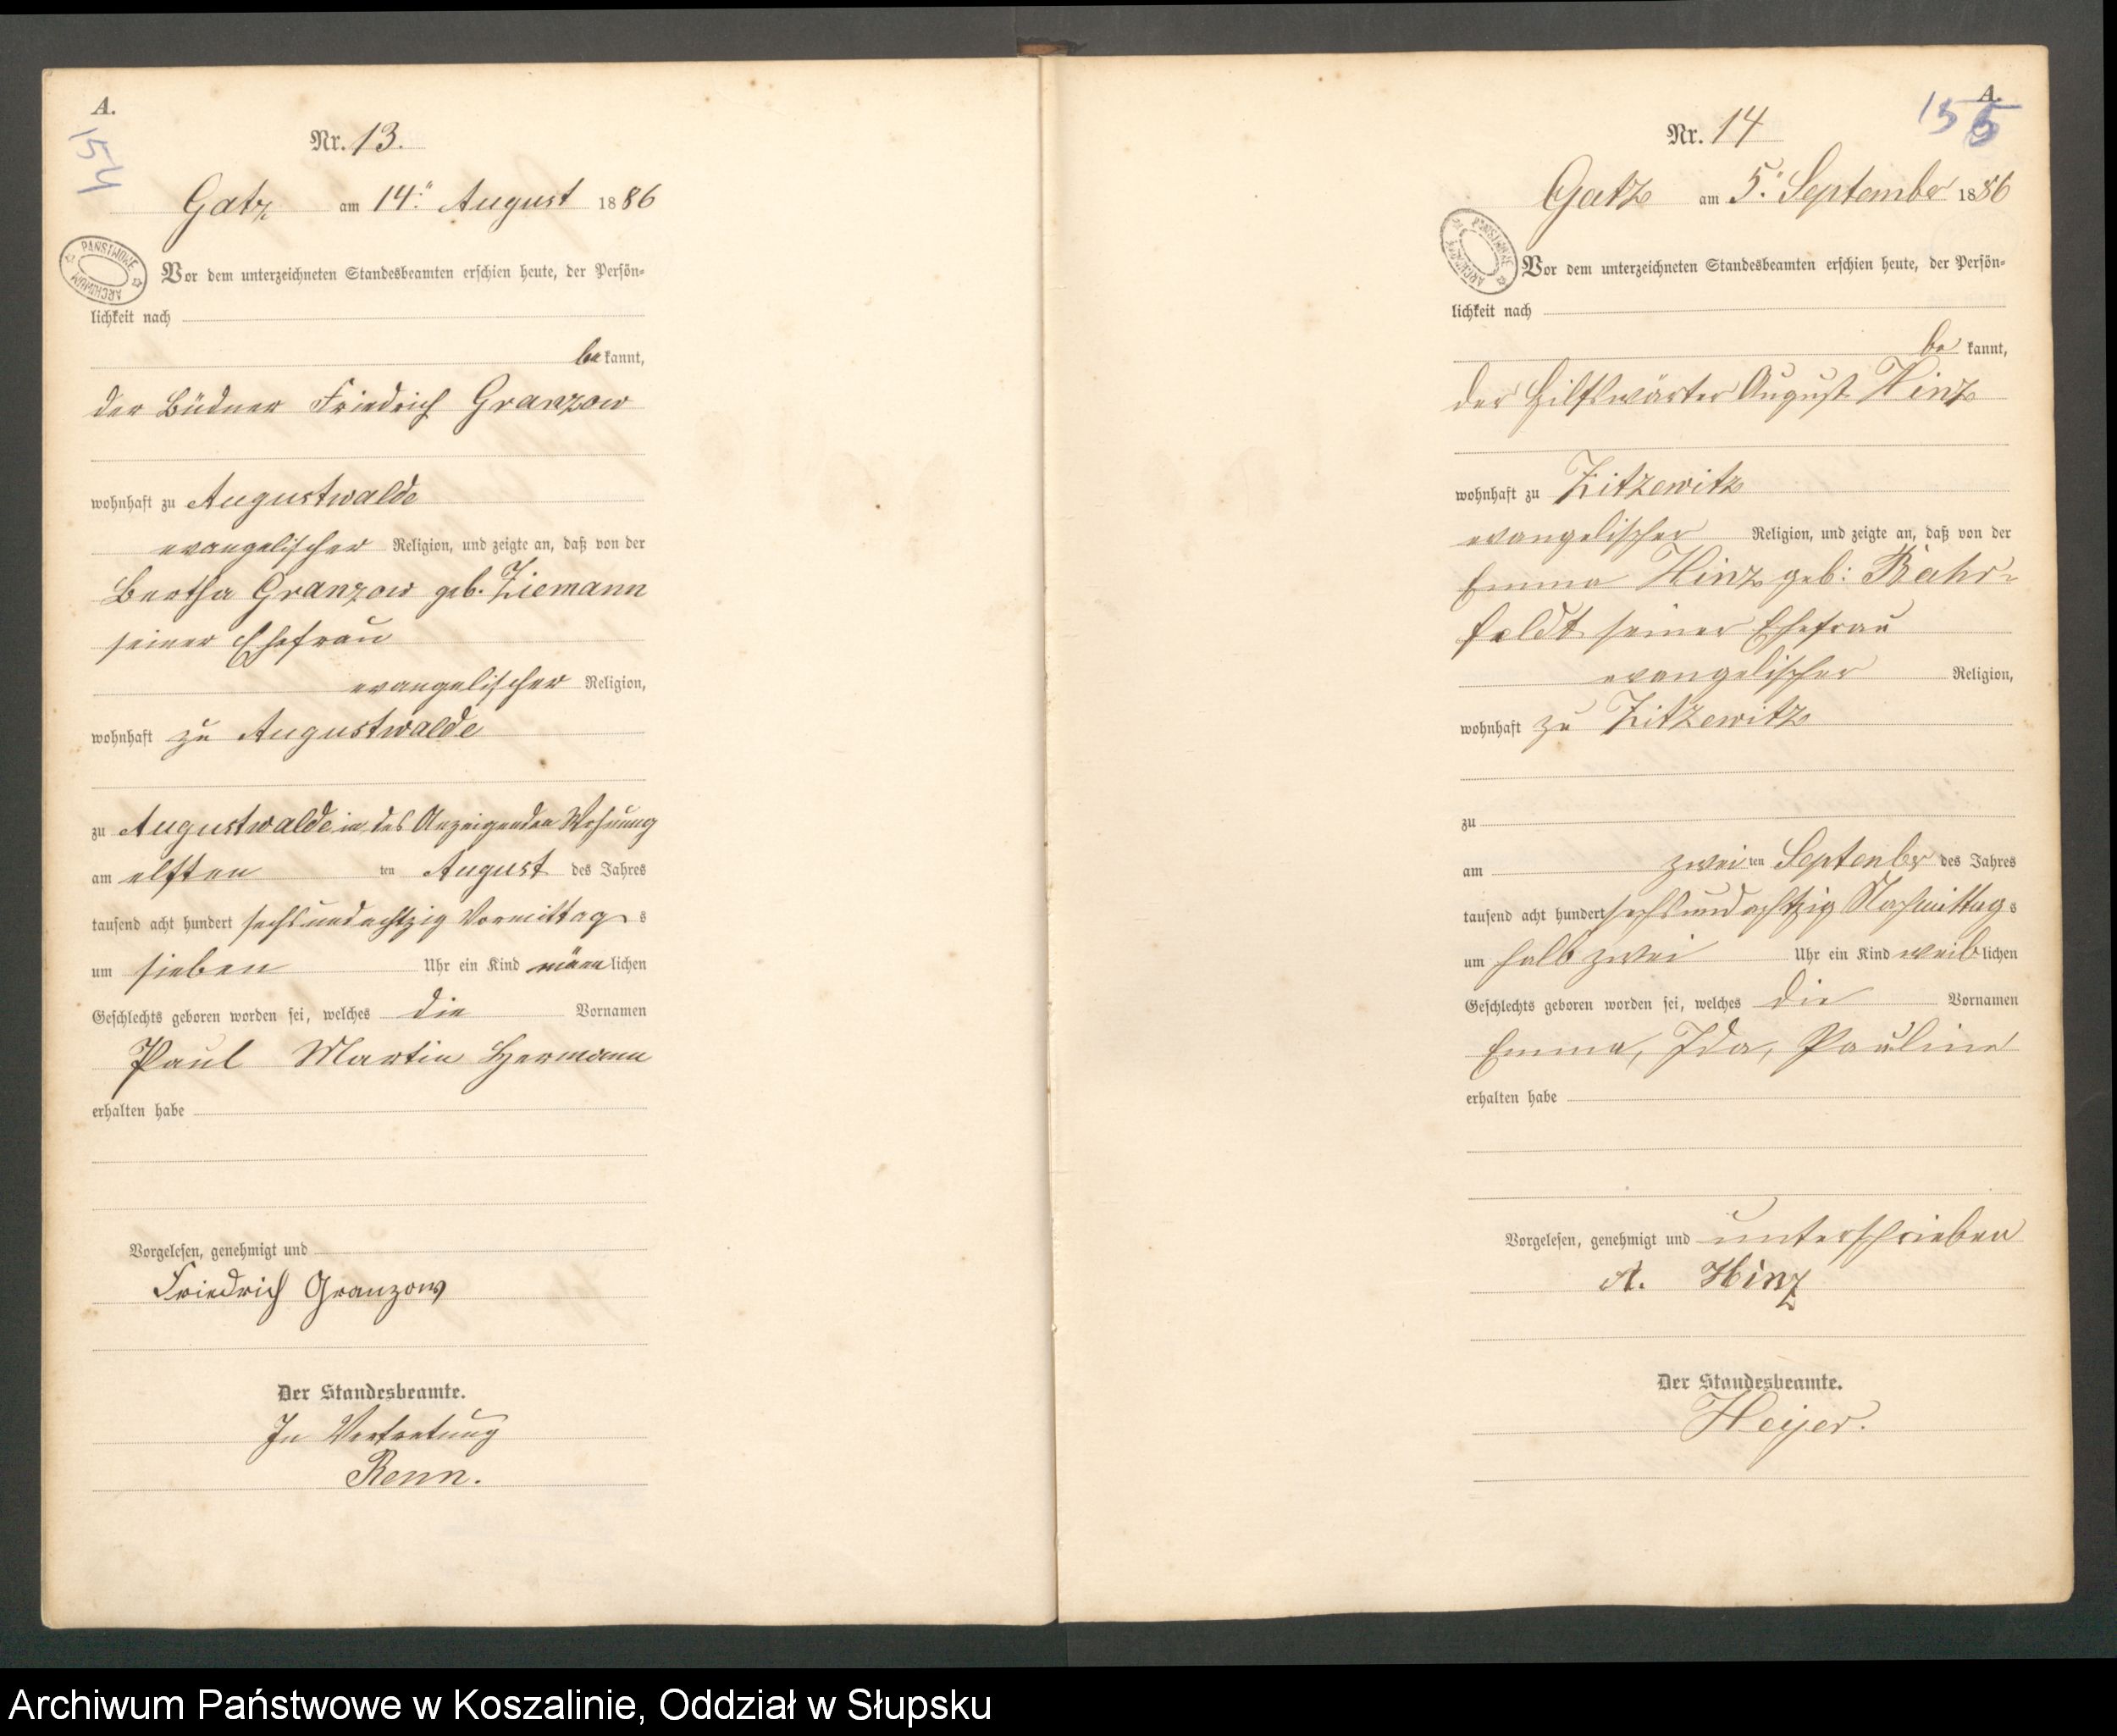 A.
154
Nr. 13.
Gatz am 14ten August 1886
PAŃSTWOWE ARCHIWUM
Vor dem unterzeichneten Standesbeamten erschien heute, der Persön-
lichkeit nach
be kannt,
der Büdner Friedrich Granzow
wohnhaft zu Augustwalde
evangelischer Religion, und zeigte an, daß von der
Bertha Granzow geb. Ziemann
seiner Ehefrau
evangelischer Religion,
wohnhaft zu Augustwalde
zu Augustwalde in des Anzeigenden Wohnung
am elften ten August des Jahres
tausend acht hundert sechsundachtzig Vormittag s
um sieben Uhr ein Kind männ lichen
Geschlechts geboren worden sei, welches die Vornamen
Paul Martin Hermann
erhalten habe
Vorgelesen, genehmigt und
Friedrich Granzow
Der Standesbeamte.
In Vertretung
Renn.
A.
155
Nr. 14
Gatz am 5ten September 1886
PAŃSTWOWE ARCHIWUM
Vor dem unterzeichneten Standesbeamten erschien heute, der Persön-
lichkeit nach
be kannt,
der Hilfswärter August Hinz
wohnhaft zu Zitzewitz
evangelischer Religion, und zeigte an, daß von der
Emma Hinz geb: Bahr-
feldt seiner Ehefrau
evangelischer Religion,
wohnhaft zu Zitzewitz
zu
am zwei ten September des Jahres
tausend acht hundert sechsundachtzig Nachmittag s
um halb zwei Uhr ein Kind weib lichen
Geschlechts geboren worden sei, welches die Vornamen
Emma, Ida, Pauline
erhalten habe
Vorgelesen, genehmigt und unterschrieben
A. Hinz
Der Standesbeamte.
Heyer.
Archiwum Państwowe w Koszalinie, Oddział w Słupsku